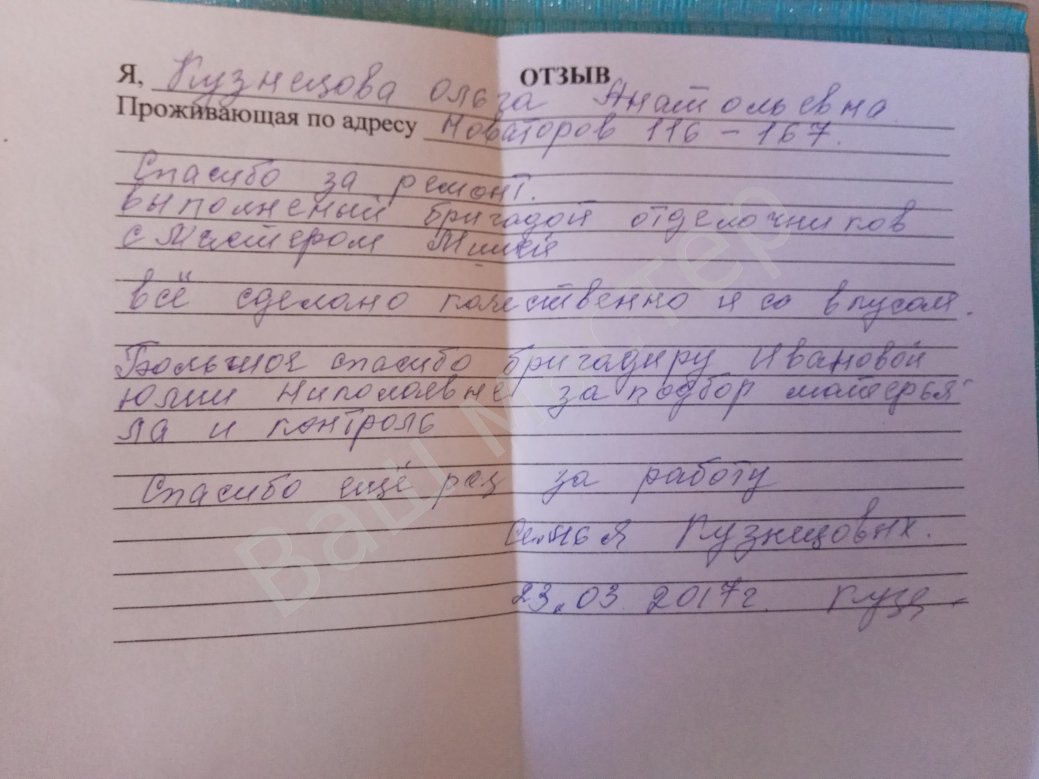 ОТЗЫВ
Я, Кузнецова Ольга Анатольевна
Проживающая по адресу Новаторов 116 - 167.
Спасибо за ремонт.
выполненый бригадой отделочников
с Мастером Мишей
всё сделано качественно и со вкусом.
Большое спасибо бригадиру Ивановой
Юлии Николаевне за подбор матерья-
ла и контроль
Спасибо ещё раз за работу
Семья Кузнецовых.
23.03 2017г.
Ваш Мастер